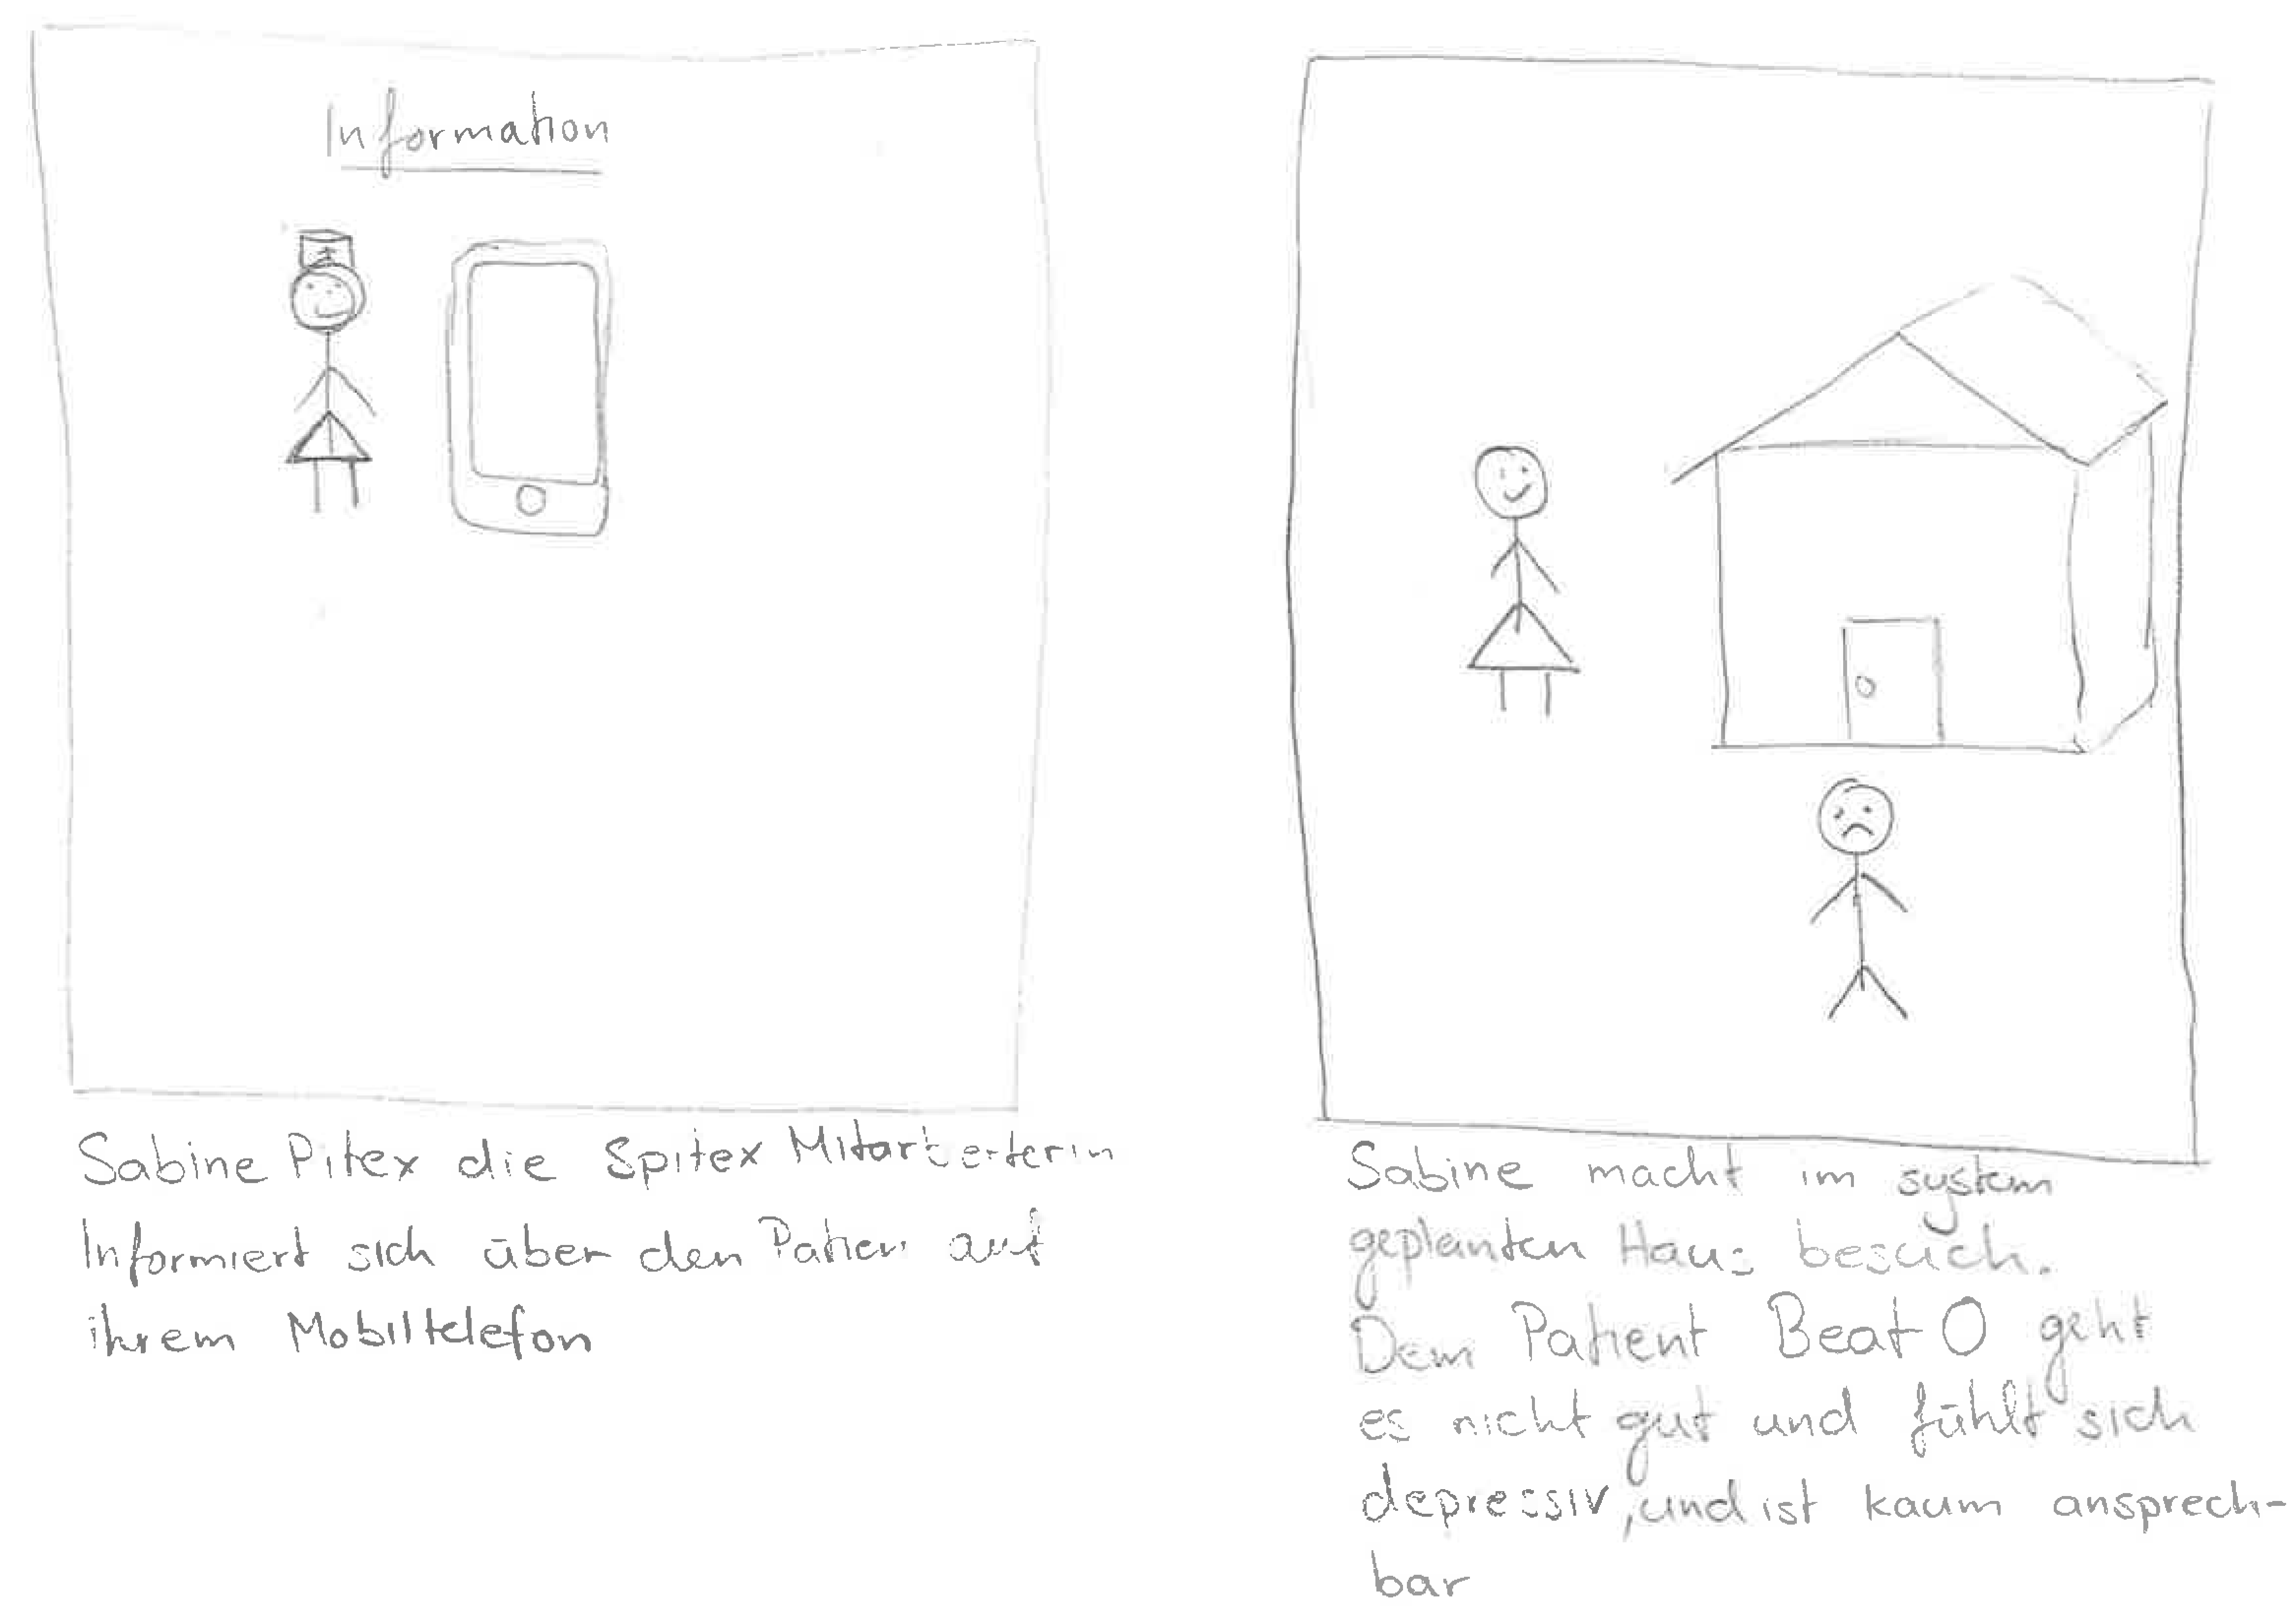 Information
Sabine Pitex die Spitex Mitarbeiterin
Informiert sich über den Patien auf
ihrem Mobiltelefon
Sabine macht im system
geplanten Haus besuch.
Dem Patient Beat O geht
es nicht gut und fühlt sich
depressiv, und ist kaum ansprech-
bar